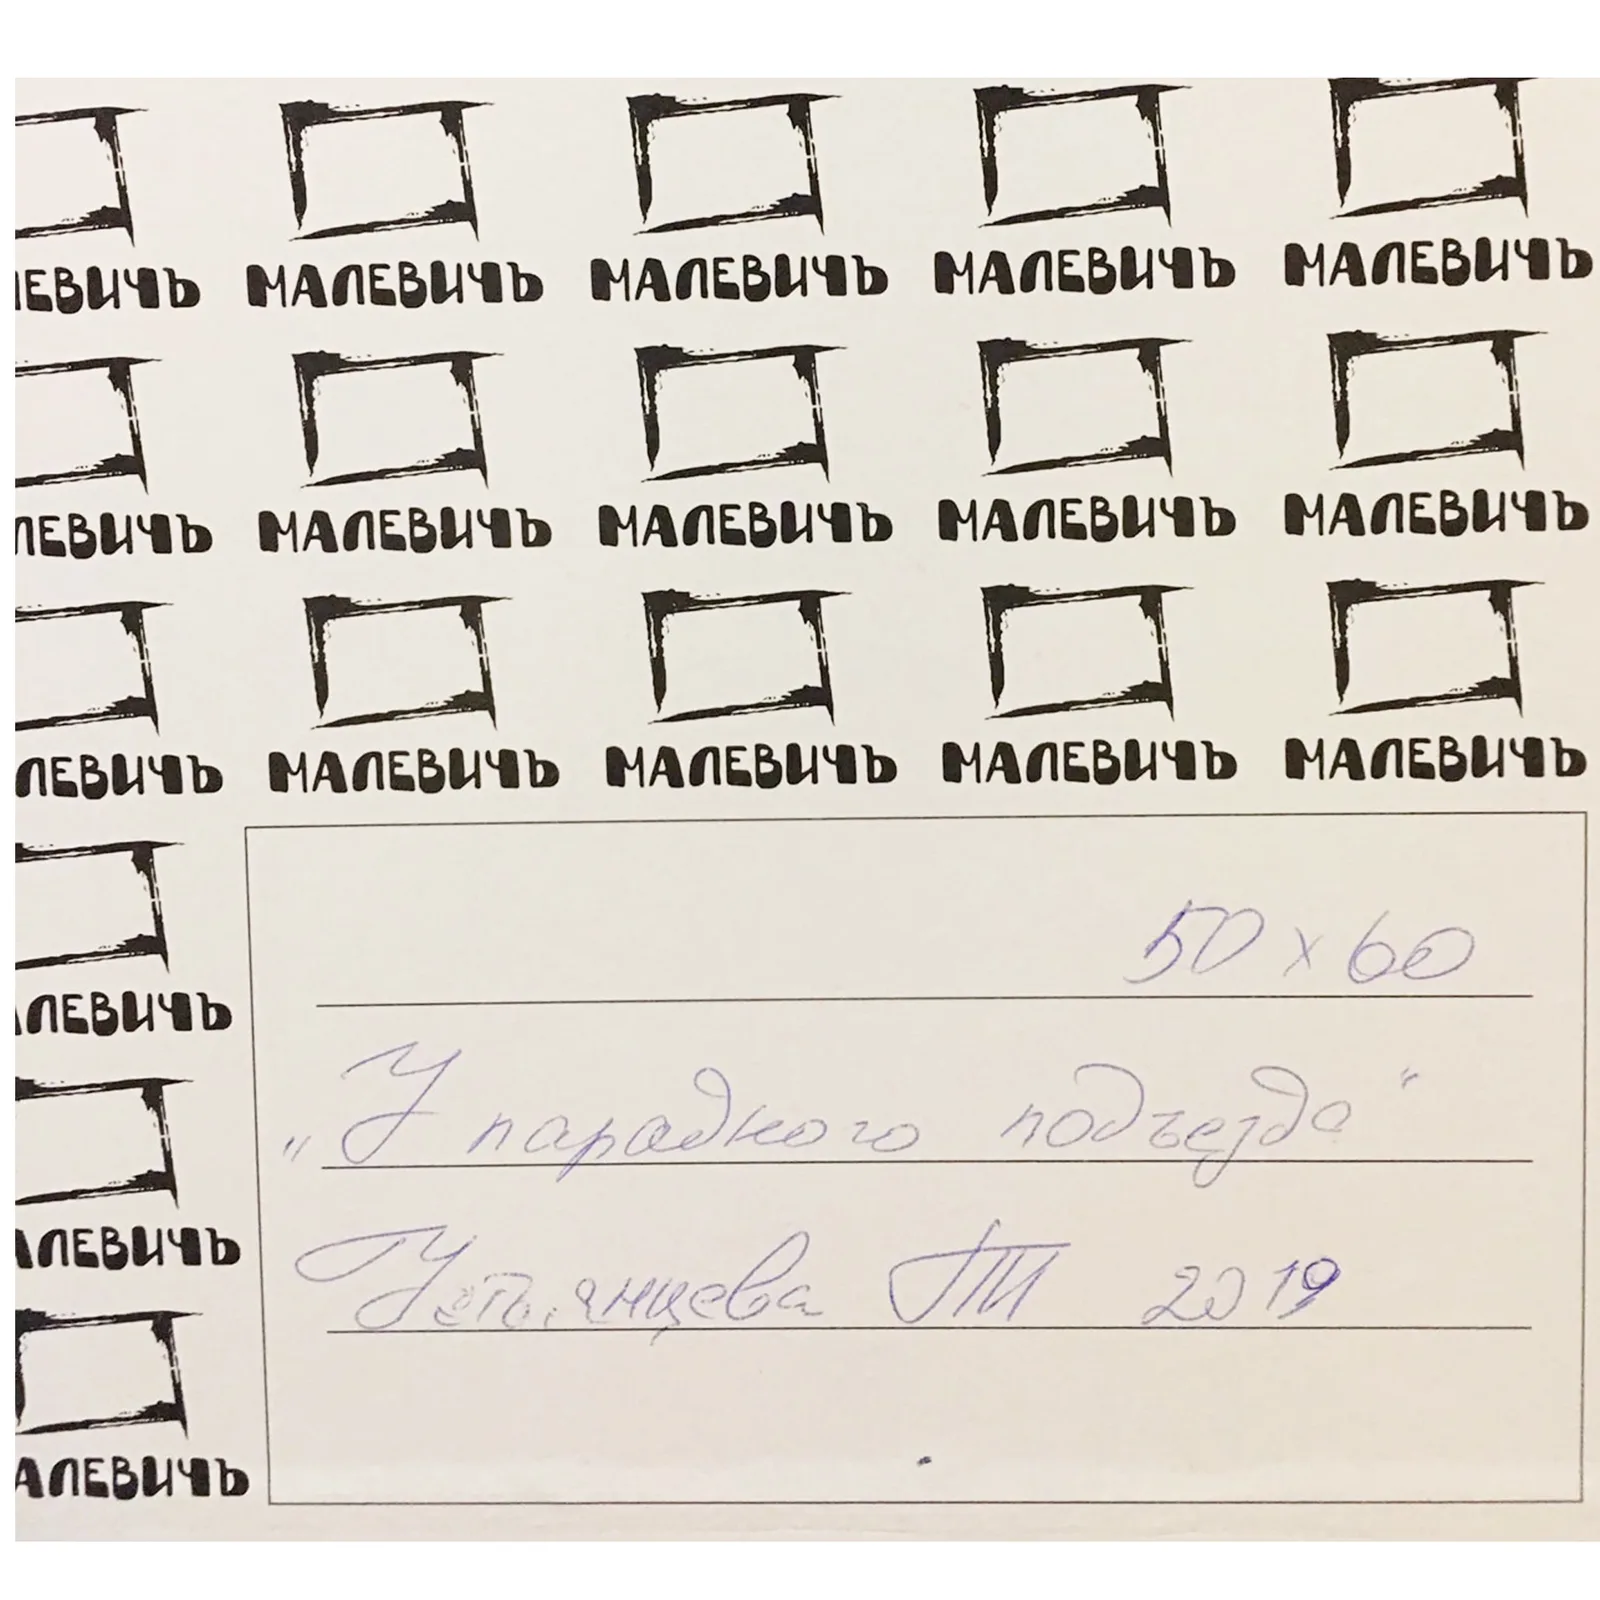 ЛЕВИЧЪ МАЛЕВИЧЪ МАЛЕВИЧЪ МАЛЕВИЧЪ МАЛЕВИЧЪ
ЛЕВИЧЪ МАЛЕВИЧЪ МАЛЕВИЧЪ МАЛЕВИЧЪ МАЛЕВИЧЪ
ЛЕВИЧЪ МАЛЕВИЧЪ МАЛЕВИЧЪ МАЛЕВИЧЪ МАЛЕВИЧЪ
АЛЕВИЧЪ
АЛЕВИЧЪ
АЛЕВИЧЪ
50 х 60
„У парадного подъезда“
Устьянцева ТИ 2019